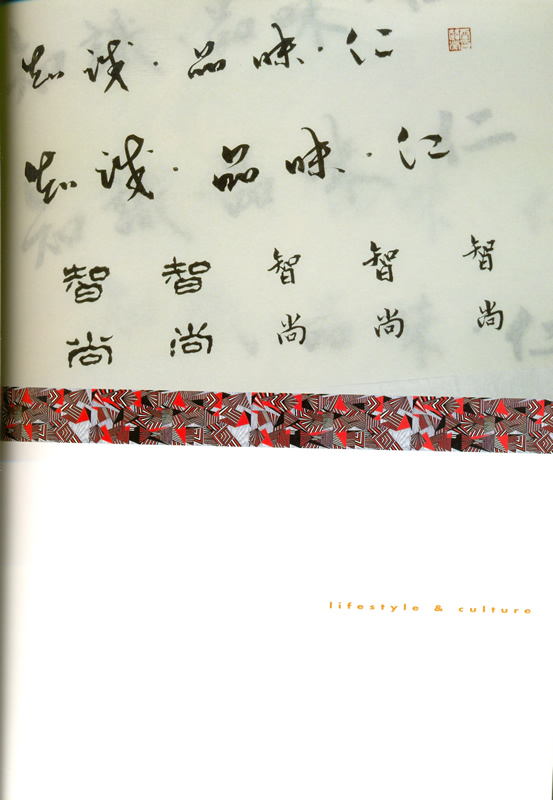 知識·品味·仁
知識·品味·仁
智 智 智 智 智
尚 尚 尚 尚 尚
lifestyle & culture